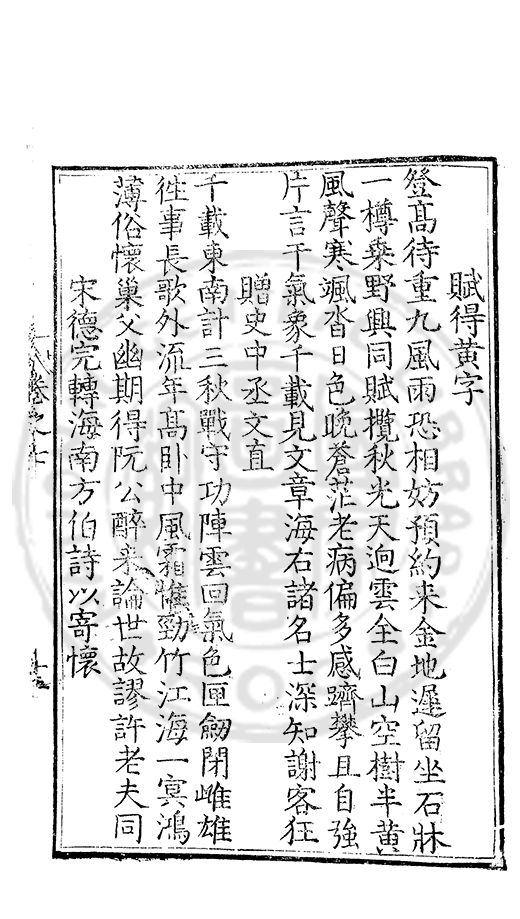 賦得黃字
登髙待重九風雨恐相妨預約来金地遲留坐石牀
一樽乘野興同賦攬秋光天逈雲全白山空樹半黃
風聲寒颯沓日色晚蒼茫老病偏多感躋攀且自強
片言干氣象千載見文章海右諸名士深知謝客狂
贈史中丞文直
千載東南計三秋戰守功陣雲回氣色匣劒閉雌雄
徃事長歌外流年髙卧中風霜惟勁竹江海一冥鴻
薄俗懷巢父幽期得阮公醉来論世故謬許老夫同
宋德完轉海南方伯詩以寄懷
卷之七